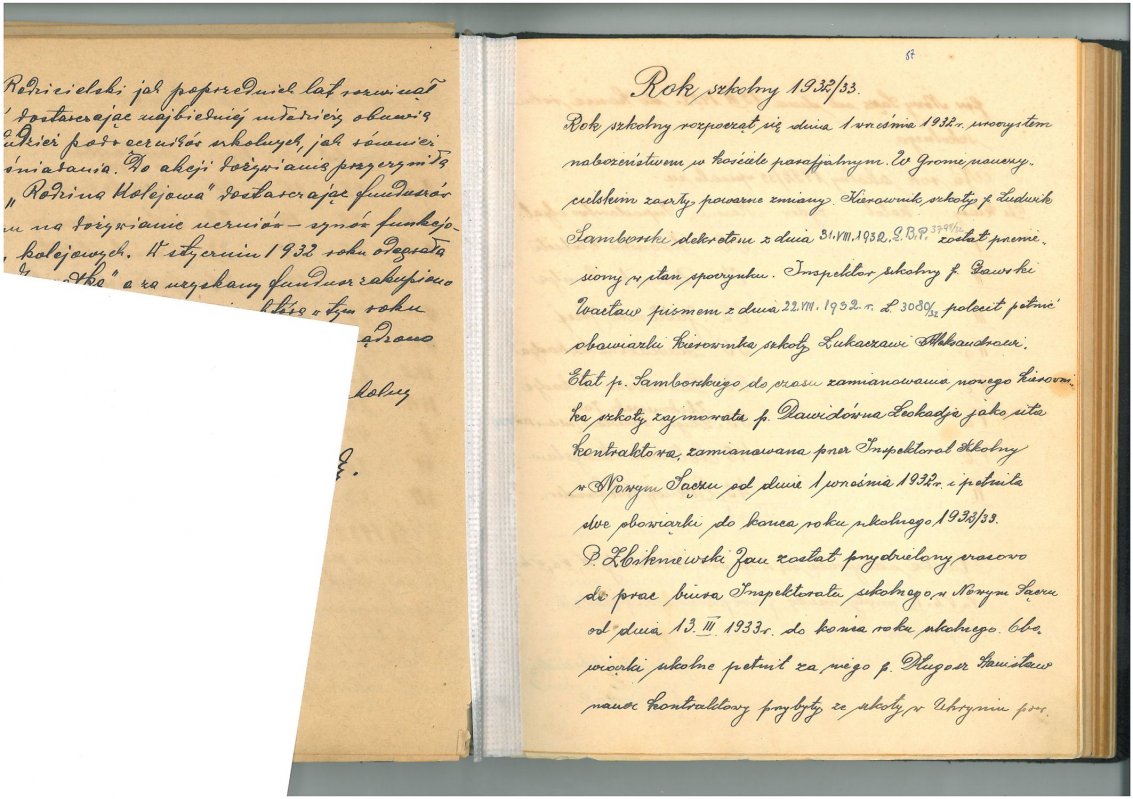 Rodzicielski jak poprzednich lat rozwinął
dostarczając najbiedniéj młodzieży obuwia
podręczników szkolnych, jak również
śniadania. Do akcji dożywiania przyczyniła
„Rodzina Kolejowa" dostarczając funduszów
na dożywianie uczniów – synów funkcjo-
kolejowych. W styczniu 1932 roku odegrała
a za uzyskany fundusz zakupiono
tym roku
57
Rok szkolny 1932/33.
Rok szkolny rozpoczął się dnia 1 września 1932 r. uroczystem
nabożeństwem w kościele parafjalnym. W Gronie nauczy-
cielskim zaszły poważne zmiany. Kierownik szkoły p. Ludwik
Samborski dekretem z dnia 31.VIII.1932. Q.B.P. został prenie-
siony w stan spoczynku. Inspektor szkolny p. Zawski
Wacław pismem z dnia 22.VIII.1932. r. L. 3080/32 polecił pełnić
obowiązki kierownika szkoły Łukaczowi Aleksandrowi.
Etat p. Samborskiego do czasu zamianowania nowego kierowni-
ka szkoły zajmowała p. Dawidówna Leokadja jako siła
kontraktowa, zamianowana przez Inspektorat Szkolny
w Nowym Sączu od dnia 1 września 1932 r. i pełniła
swe obowiązki do końca roku szkolnego 1932/33.
P. Zbikniewski Jan został przydzielony czasowo
do prac biura Inspektoratu szkolnego w Nowym Sączu
od dnia 13.III.1933 r. do końca roku szkolnego. Obo-
wiązki szkolne pełnił za niego p. Długosz Stanisław
naucz kontraktowy przybyły ze szkoły w Uhryniu prze